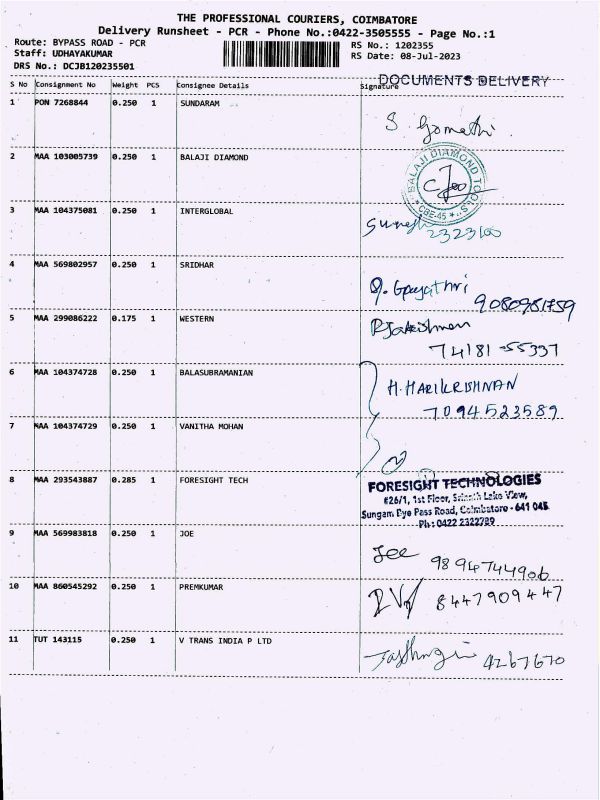 THE PROFESSIONAL COURIERS, COIMBATORE
Delivery Runsheet - PCR - Phone No.:0422-3505555 - Page No.:1
Route: BYPASS ROAD - PCR
Staff: UDHAYAKUMAR
DRS No.: DCJB120235501
RS No.: 1202355
RS Date: 08-Jul-2023
DOCUMENTS DELIVERY
S No Consignment No Weight PCS Consignee Details Signature
1 PON 7268844 0.250 1 SUNDARAM
S Gomathi
2 MAA 103005739 0.250 1 BALAJI DIAMOND
BALAJI DIAMOND TOOLS * CBE-45 *
3 MAA 104375081 0.250 1 INTERGLOBAL
Suresh
2323100
4 MAA 569802957 0.250 1 SRIDHAR
Gayathri
9080981759
5 MAA 299086222 0.175 1 WESTERN
74181-55337
6 MAA 104374728 0.250 1 BALASUBRAMANIAN
H. HARIKRISHNAN
7094523589
7 MAA 104374729 0.250 1 VANITHA MOHAN
8 MAA 293543887 0.285 1 FORESIGHT TECH
FORESIGHT TECHNOLOGIES
#26/1, 1st Floor, Srinath Lake View,
Sungam Bye Pass Road, Coimbatore - 641 045.
Ph: 0422 2322789
9 MAA 569983818 0.250 1 JOE
Joe 9894744906
10 MAA 860545292 0.250 1 PREMKUMAR
8447909447
11 TUT 143115 0.250 1 V TRANS INDIA P LTD
4267670